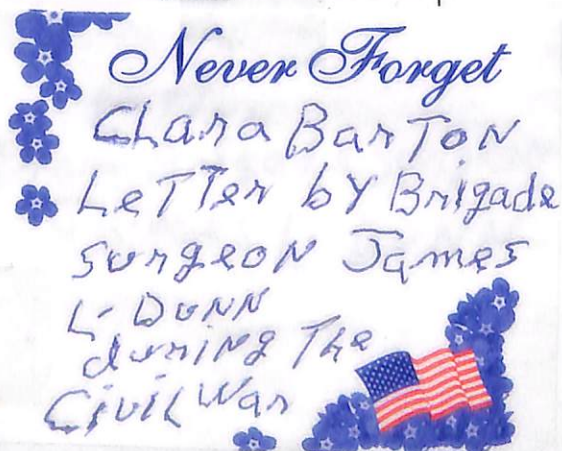 Never Forget
Clara Barton
Letter by Brigade
surgeon James
L. Dunn
during The
Civil War